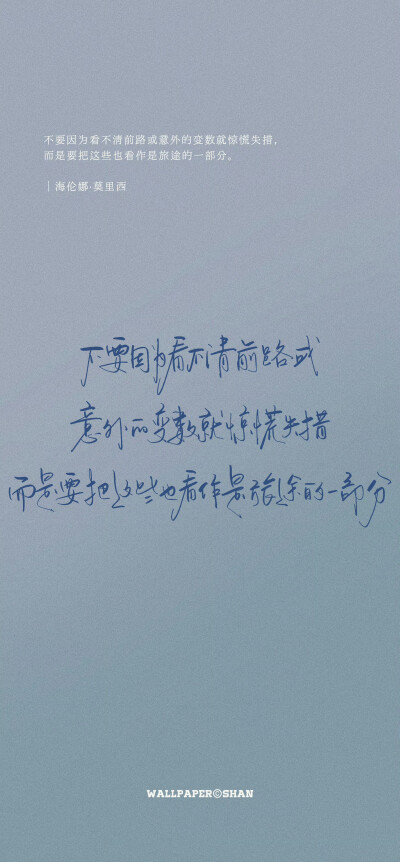 不要因为看不清前路或意外的变数就惊慌失措，
而是要把这些也看作是旅途的一部分。
｜海伦娜·莫里西
不要因为看不清前路或
意外的变数就惊慌失措
而是要把这些也看作是旅途的一部分
WALLPAPER©SHAN